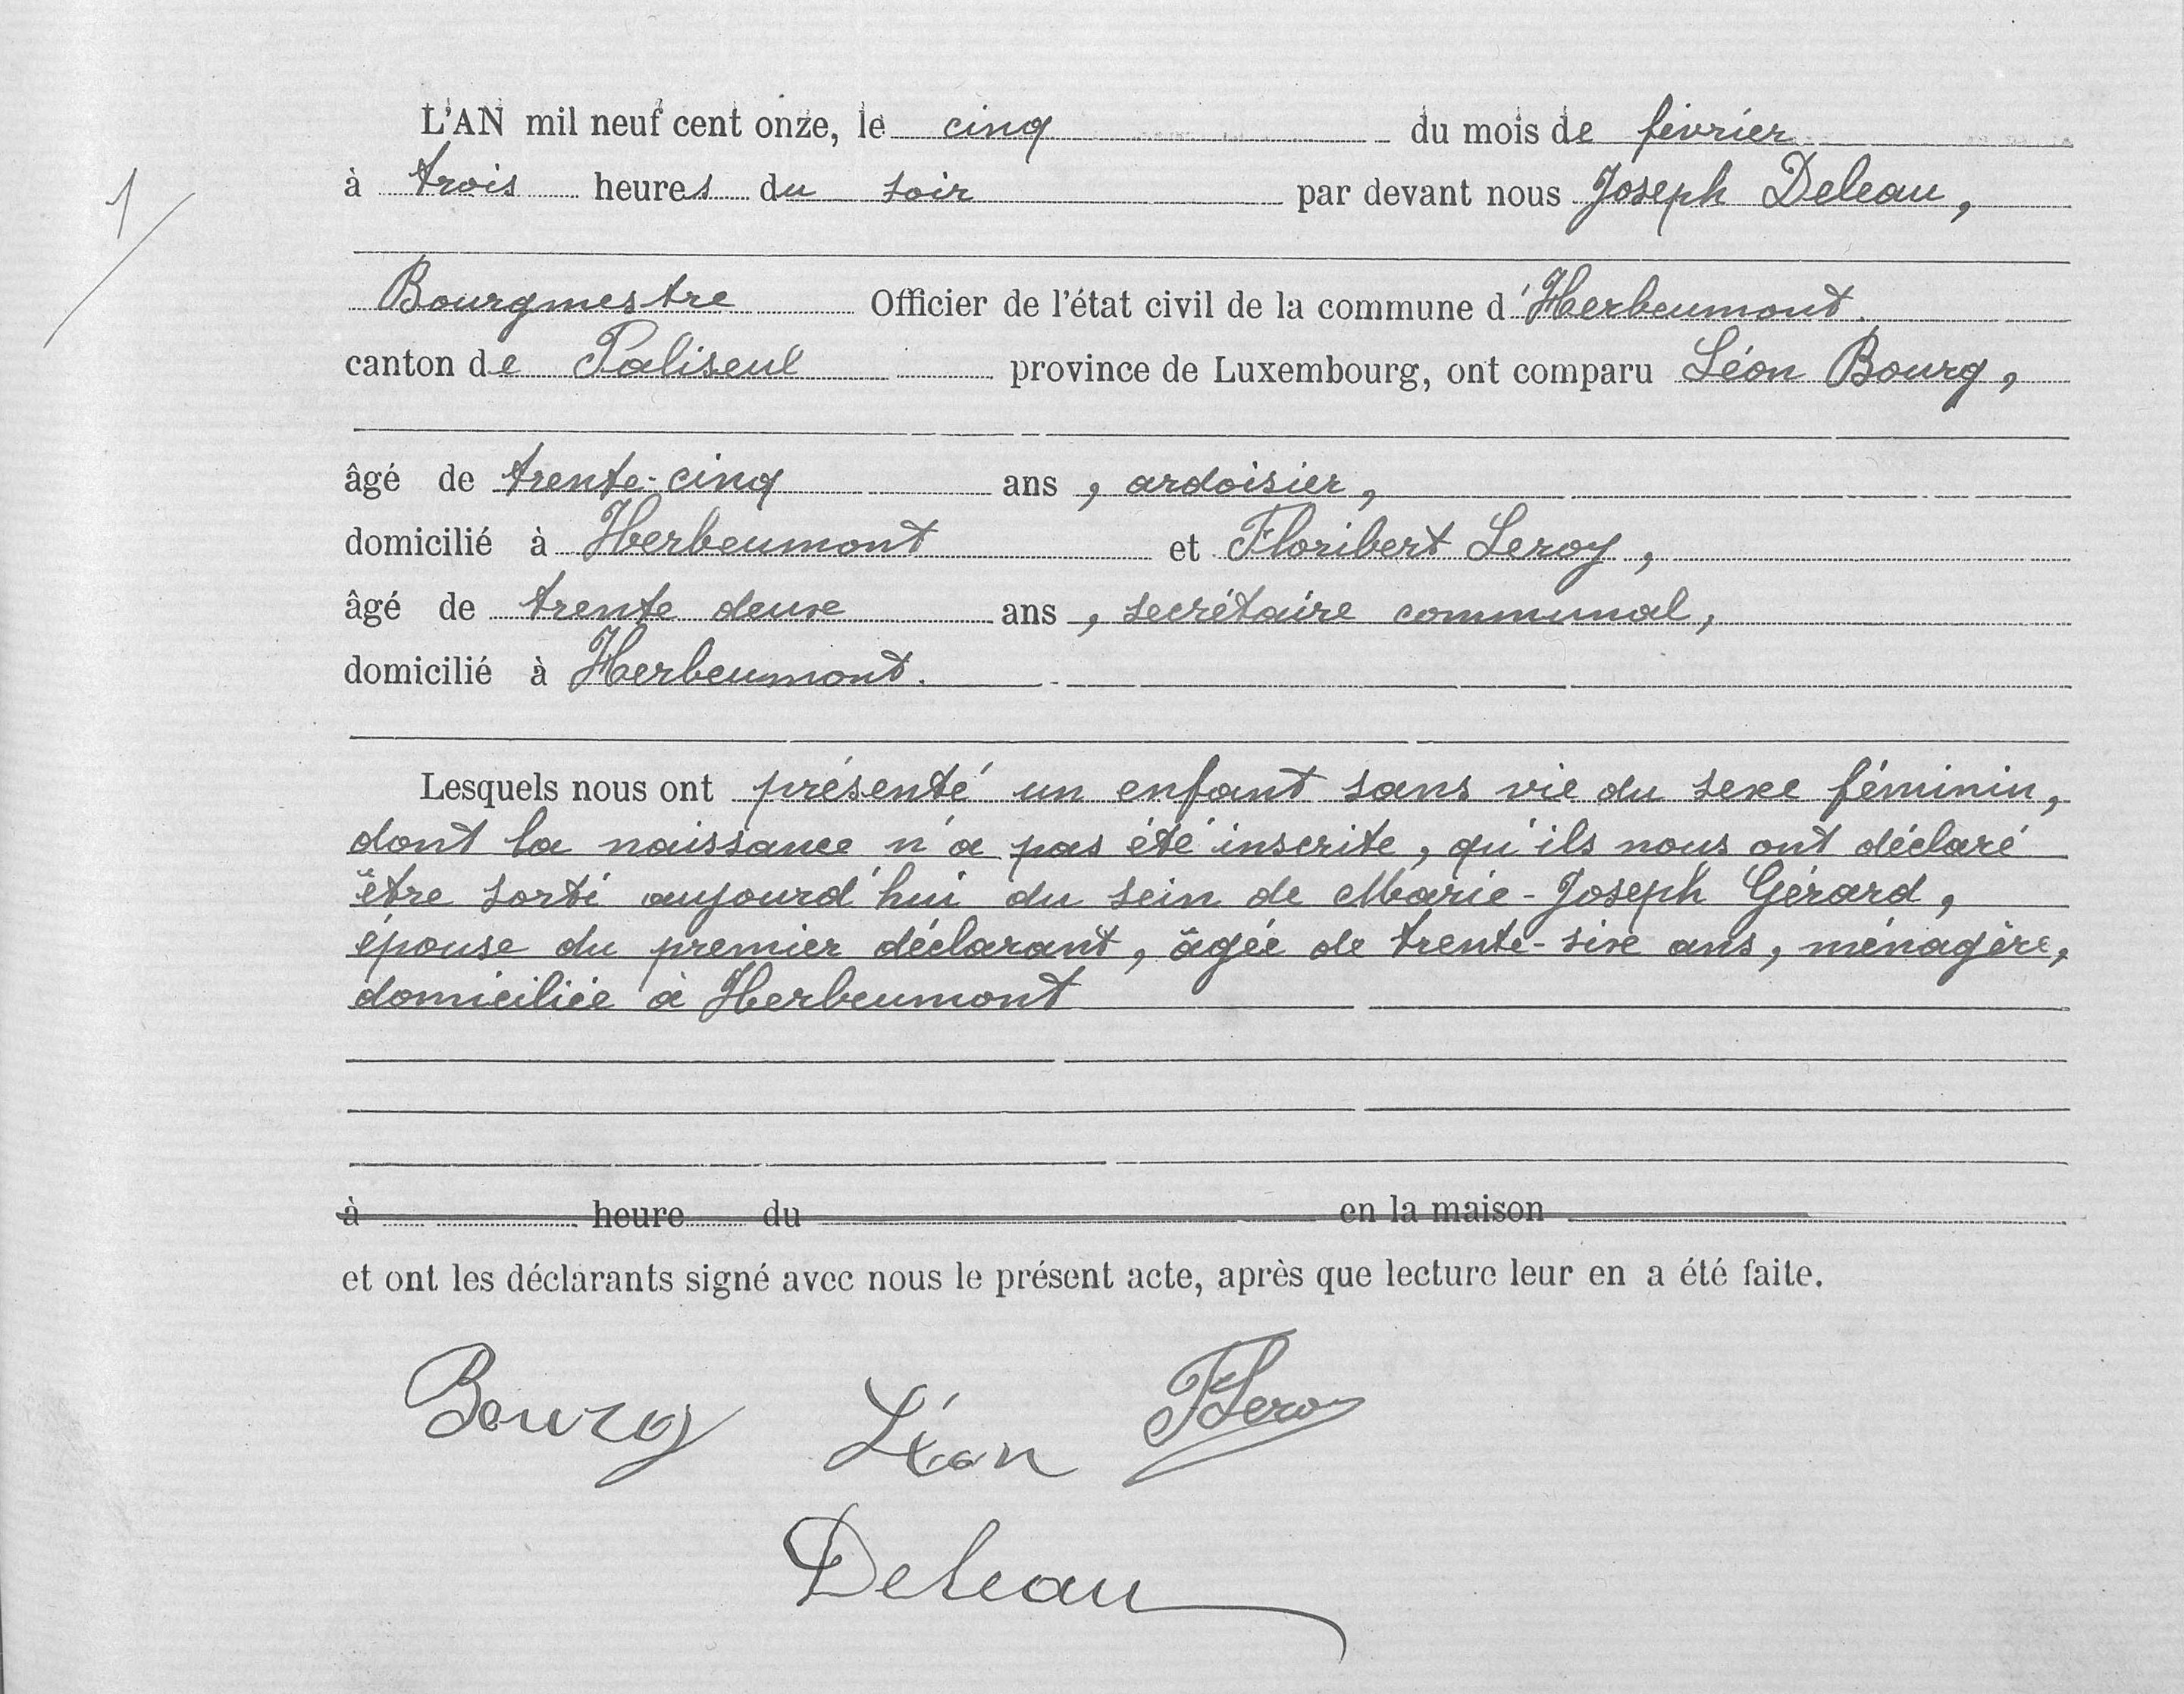 L'AN mil neuf cent onze, le cinq du mois de février
1
à trois heures du soir par devant nous Joseph Deleau,
Bourgmestre Officier de l'état civil de la commune d'Herbeumont.
canton de Paliseul province de Luxembourg, ont comparu Léon Bourg,
âgé de trente-cinq ans, ardoisier,
domicilié à Herbeumont et Floribert Leroy,
âgé de trente deux ans, secrétaire communal,
domicilié à Herbeumont.
Lesquels nous ont présenté un enfant sans vie du sexe féminin,
dont la naissance n'a pas été inscrite, qu'ils nous ont déclaré
être sorti aujourd'hui du sein de Marie-Joseph Gérard,
épouse du premier déclarant, âgée de trente-six ans, ménagère,
domiciliée à Herbeumont
à heure du en la maison
et ont les déclarants signé avec nous le présent acte, après que lecture leur en a été faite.
Bourg Léon FLeroy
Deleau